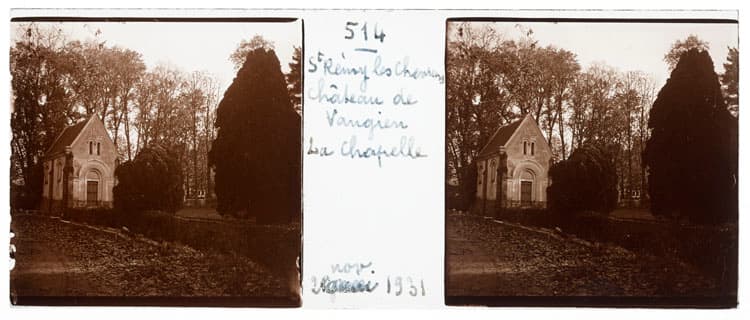 514
St Rémy les Chevreuse
Château de
Vaugien
La Chapelle
nov.
2 1931